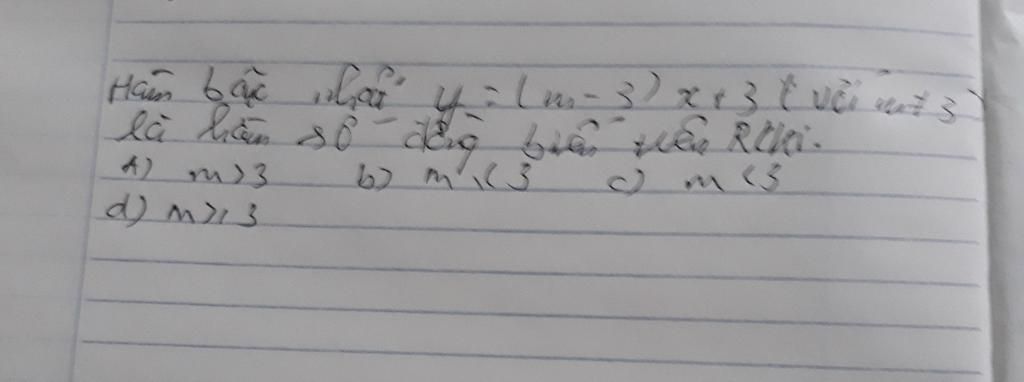 Hàm bậc nhất y = (m - 3) x + 3 (với m ≠ 3)
là hàm số đồng biến trên R khi.
A) m > 3 b) m ≤ 3 c) m < 3
d) m ≥ 3